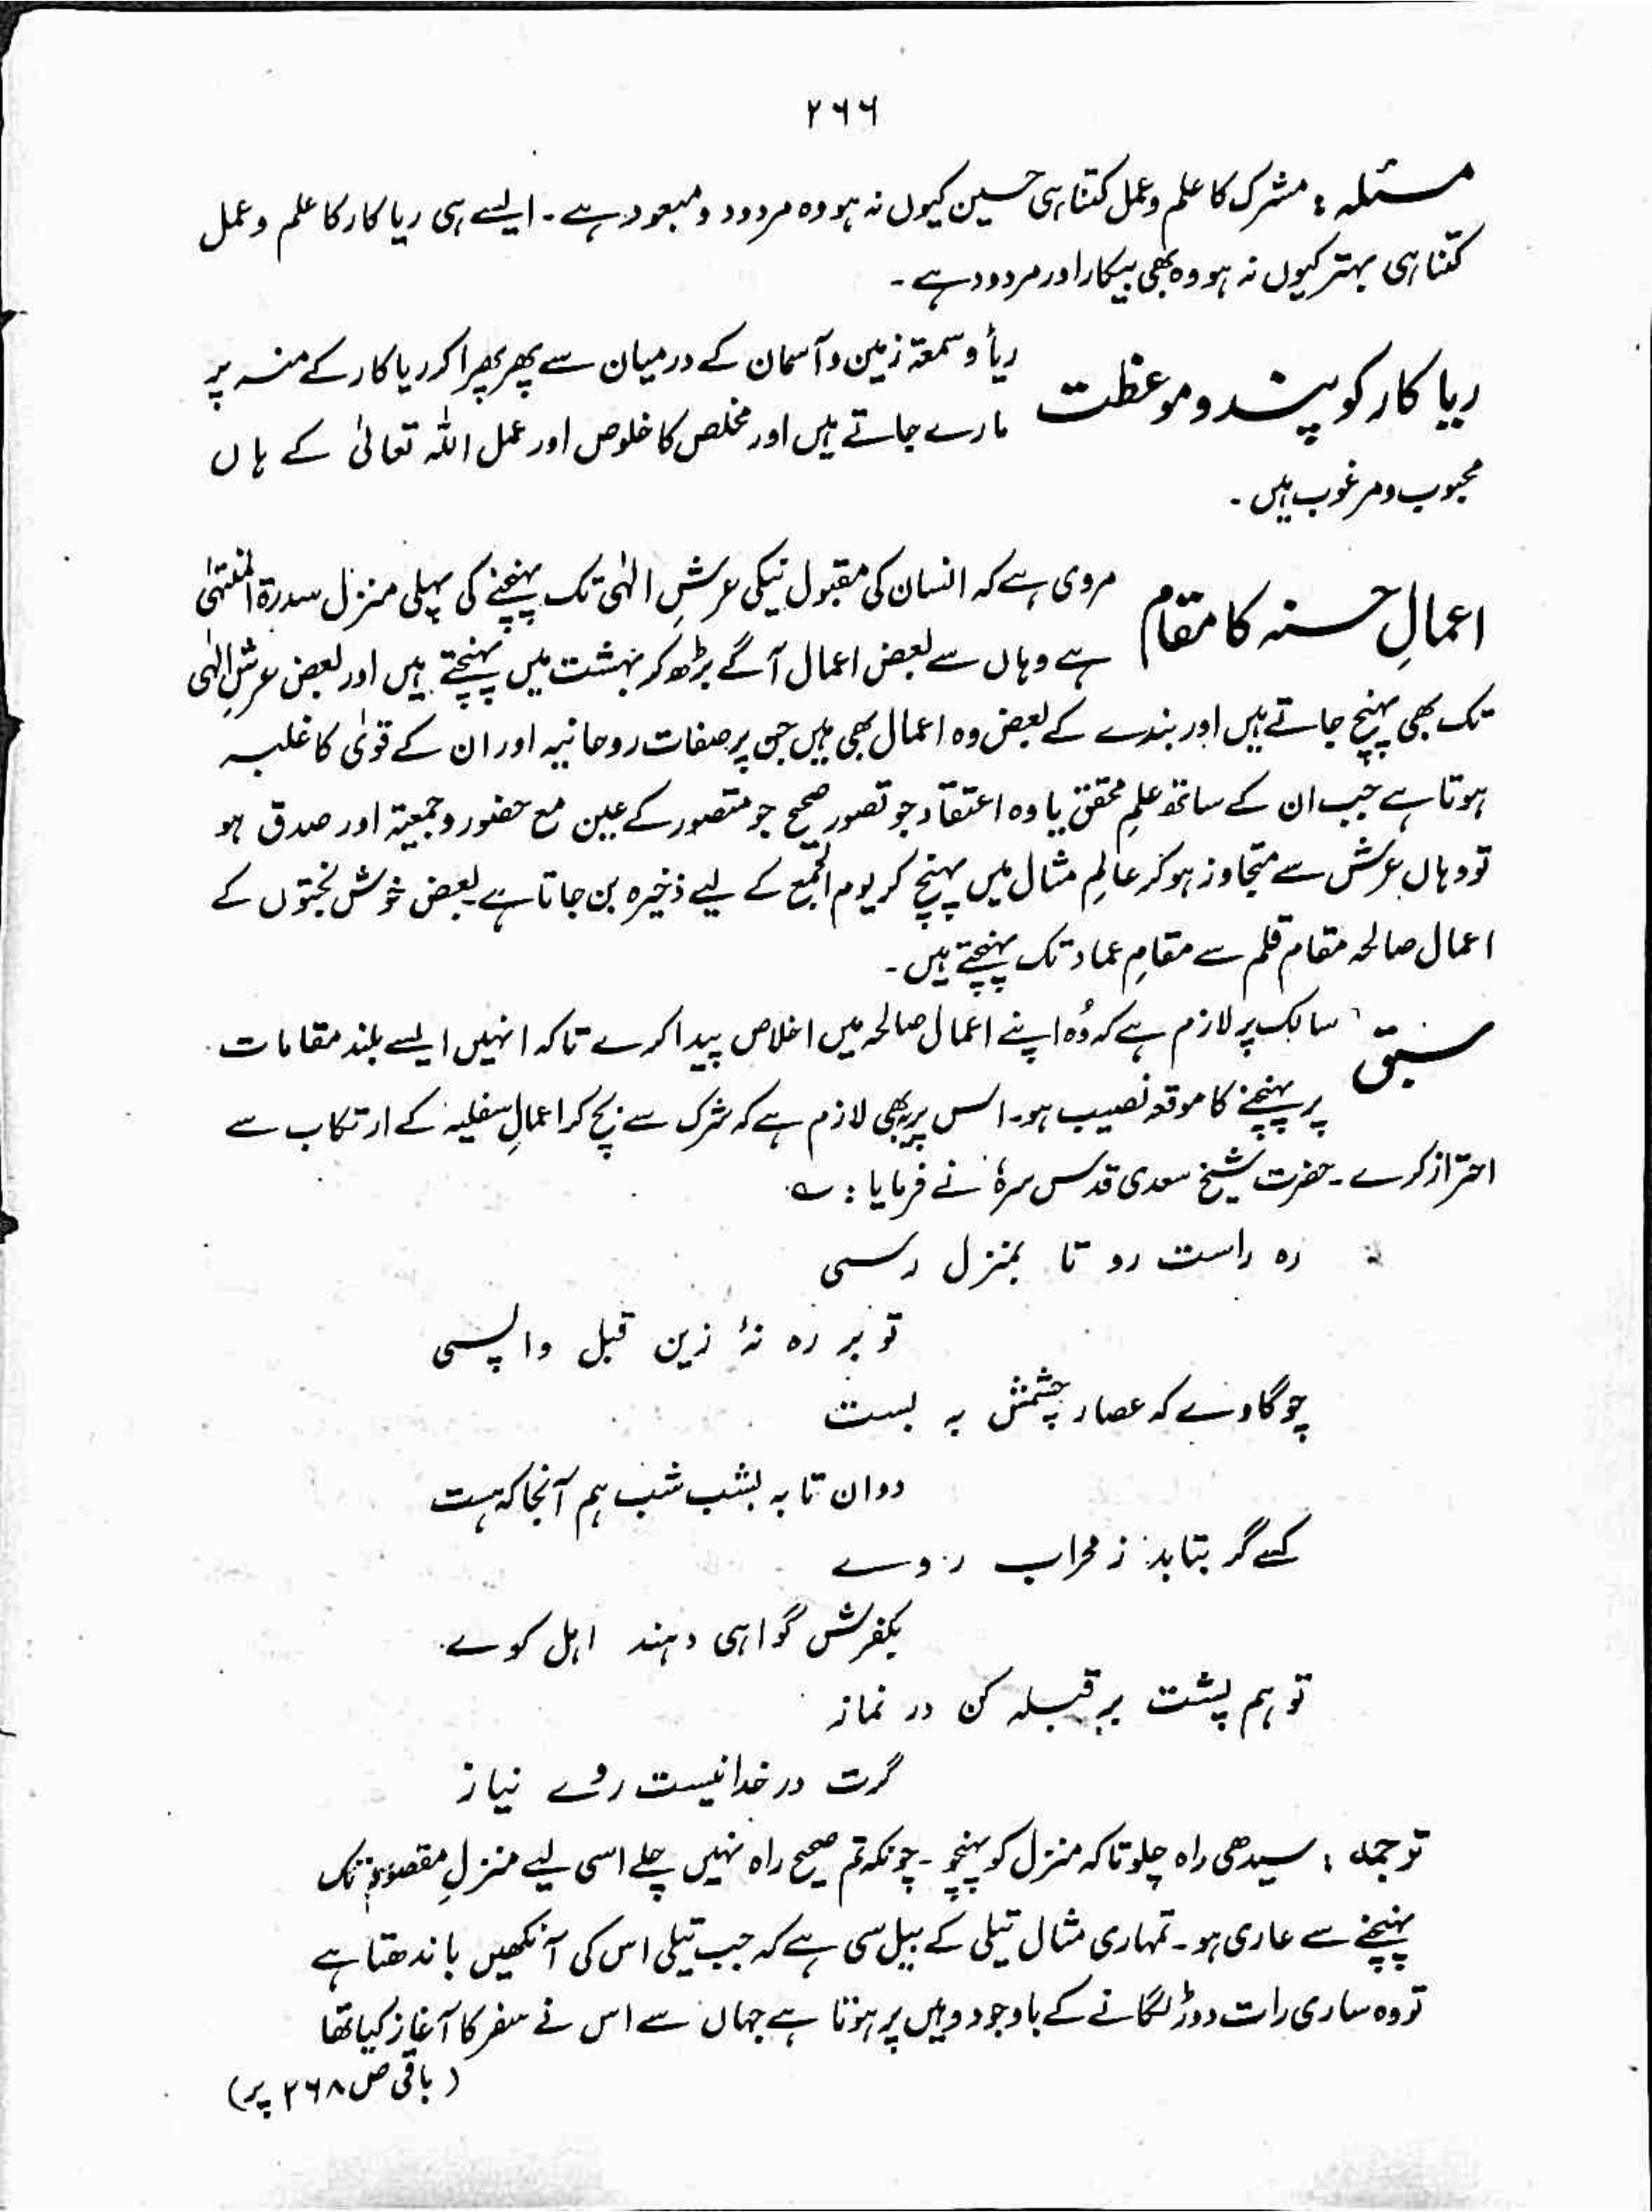 ۲۶۶
مسئلہ : مشرک کا علم وعمل کتنا ہی حسین کیوں نہ ہو وہ مردود ومبعود ہے ۔ ایسے ہی ریا کار کا علم و عمل
کتنا ہی بہتر کیوں نہ ہو وہ بھی بیکار اور مردود ہے ۔
ریا کار کو پند و موعظت
ریأ وسمعۃ زمین وآسمان کے درمیان سے پھر پھرا کر ریا کار کے منہ پر
مارے جاتے ہیں اور مخلص کا خلوص اور عمل اللہ تعالیٰ کے ہاں
محبوب ومرغوب ہیں ۔
اعمالِ حسنہ کا مقام
مروی ہے کہ انسان کی مقبول نیکی عرشِ الٰہی تک پہنچنے کی پہلی منزل سدرۃ المنتہیٰ
ہے وہاں سے بعض اعمال آگے بڑھ کر بہشت میں پہنچتے ہیں اور بعض عرشِ الٰہی
تک بھی پہنچ جاتے ہیں اور بندے کے بعض وہ اعمال بھی ہیں جن پر صفات روحانیہ اور ان کے قوٰی کا غلبہ
ہوتا ہے جب ان کے ساتھ علمِ محقق یا وہ اعتقاد جو تصور صحیح جو متصور کے عین مع حضور وجمعیۃ اور صدق ہو
تو وہاں عرش سے متجاوز ہو کر عالمِ مثال میں پہنچ کر یوم الجمع کے لیے ذخیرہ بن جاتا ہے بعض خوش بختوں کے
اعمال صالحہ مقام قلم سے مقامِ عماد تک پہنچتے ہیں ۔
سبق
سالک پر لازم ہے کہ وُہ اپنے اعمال صالحہ میں اخلاص پیدا کرے تاکہ انہیں ایسے بلند مقامات
پر پہنچنے کا موقعہ نصیب ہو۔ اس پر یہ بھی لازم ہے کہ شرک سے بچ کر اعمالِ سفلیہ کے ارتکاب سے
احتراز کرے ۔ حضرت شیخ سعدی قدس سرہٗ نے فرمایا : ؎
رہ راست رو تا بمنزل رسی
تو بر رہ نۂ زین قبل واپسی
چو گاوے کہ عصار چشمش بہ بست
دوان تا بہ بشب شب ہم آنجا کہ ہست
کسے گر بتابد ز محراب روے
بکفرش گواہی دہند اہل کوے
تو ہم پشت بر قبلہ کن در نماز
گرت در خدا نیست روے نیاز
ترجمہ : سیدھی راہ چلو تاکہ منزل کو پہنچو ۔ چونکہ تم صحیح راہ نہیں چلے اسی لیے منزلِ مقصود تک
پہنچنے سے عاری ہو ۔ تمہاری مثال تیلی کے بیل سی ہے کہ جب تیلی اس کی آنکھیں باندھتا ہے
تو وہ ساری رات دوڑ لگانے کے باوجود وہیں پر ہوتا ہے جہاں سے اس نے سفر کا آغاز کیا تھا
( باقی ص ۲۶۸ پر )